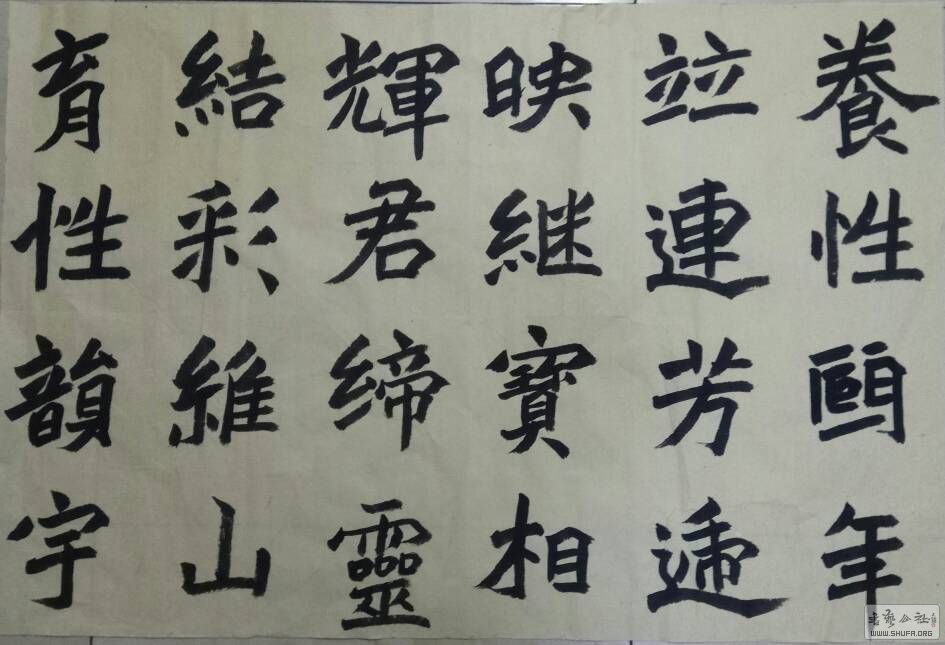 養性頤年
竝連芳逓
映継寶相
輝君締靈
結彩維山
育性韻宇
书艺公社
WWW.SHUFA.ORG